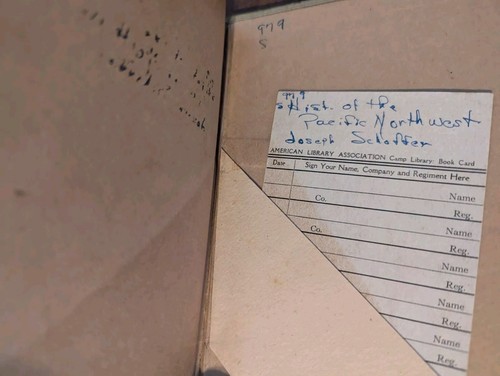 979
S
979
S Hist. of the
Pacific Northwest
Joseph Schaffer
AMERICAN LIBRARY ASSOCIATION Camp Library: Book Card
Date Sign Your Name, Company and Regiment Here
Name
Co. Reg.
Name
Co. Reg.
Name
Reg.
Name
Reg.
Name
Reg.